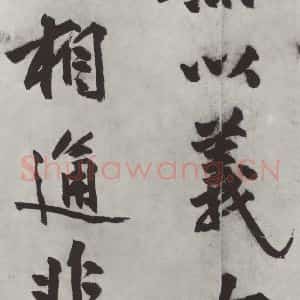 以義
相通非
Shufawang.CN